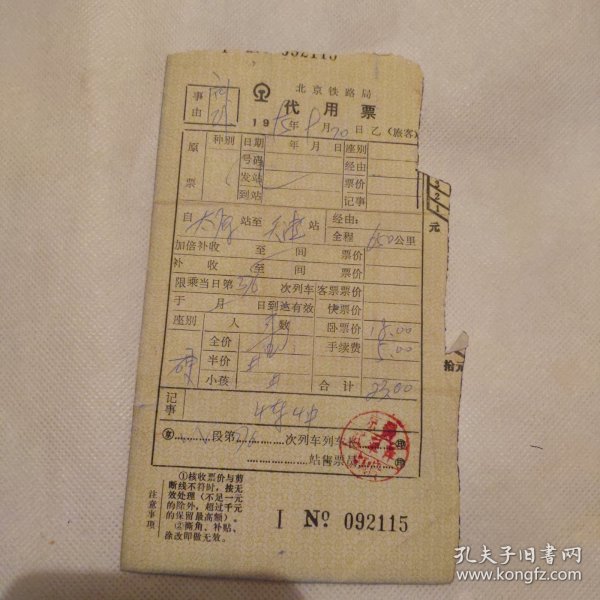 I No 092115
北京铁路局
事由 补
代用票
19 年 月 20 日 乙(旅客)
原票
种别 日期 年 月 日 座别
号码 经由
发站 票价
到站 记事
自 太原 站至 天津 站 经由:
全程 650 公里
加倍补收 至 间 票价
补收 至 间 票价
限乘当日第 376 次列车 客票票价
于 月 日到达有效 快票价
座别 人数 卧票价 18.00
硬 全价 手续费 5.00
半价
小孩 合计 23.00
记事
京 段第 次列车列车长
站售票员
注意事项
①核收票价与剪
断线不符时,按无
效处理(不足一元
的除外,超过千元
的保留最高额)。
②撕角、补贴、
涂改即做无效。
I No 092115
元
拾元
孔夫子旧书网
www.kongfz.com